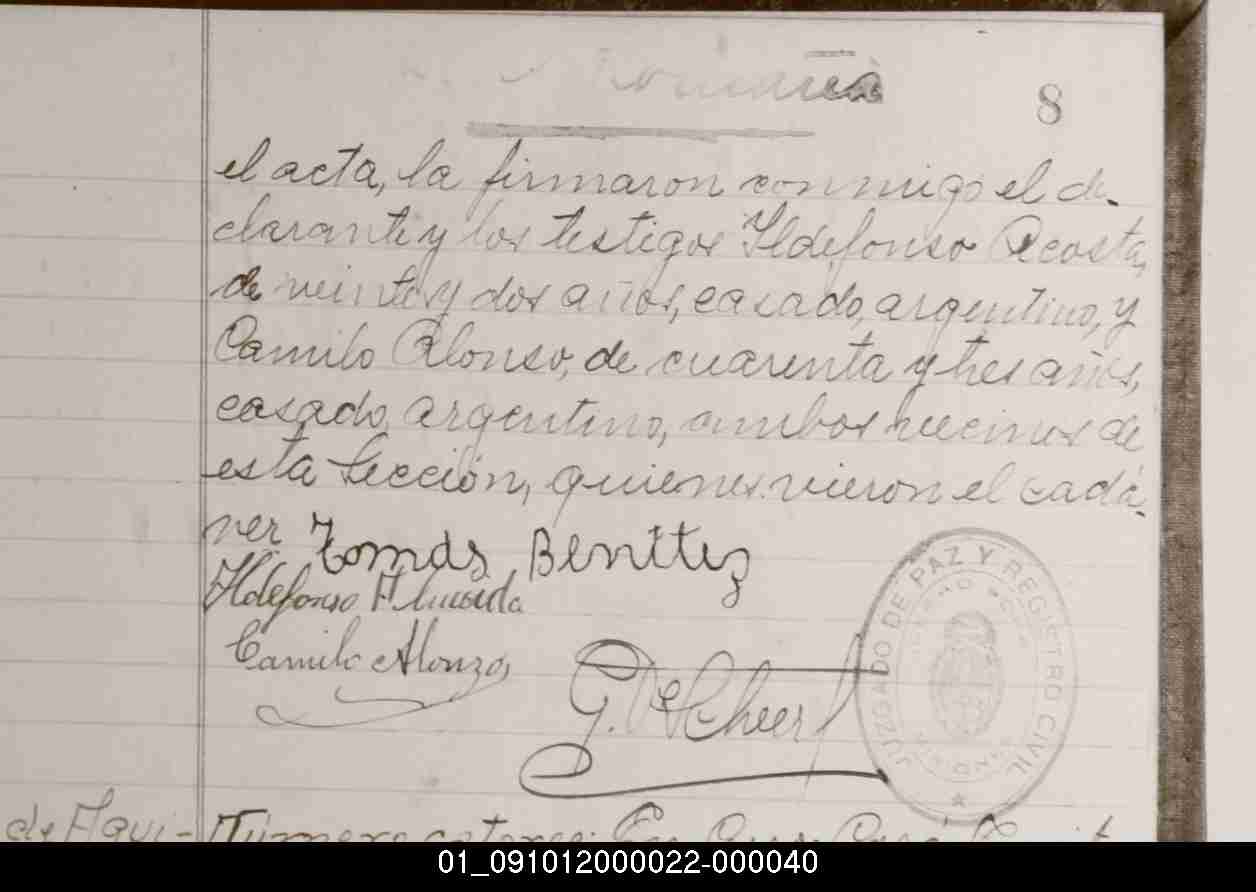 8
el acta, la firmaron conmigo el de-
clarante y los testigos Ildefonso Acosta,
de veinte y dos años, casado, argentino, y
Camilo Alonso, de cuarenta y tres años,
casado, argentino, ambos vecinos de
esta Sección, quienes vieron el cadá-
ver
Tomás Benittez
Ildefonso
Camilo Alonzo
G.
JUZGADO DE PAZ Y REGISTRO CIVIL
de Agui-
Número catorce: En
01_091012000022-000040